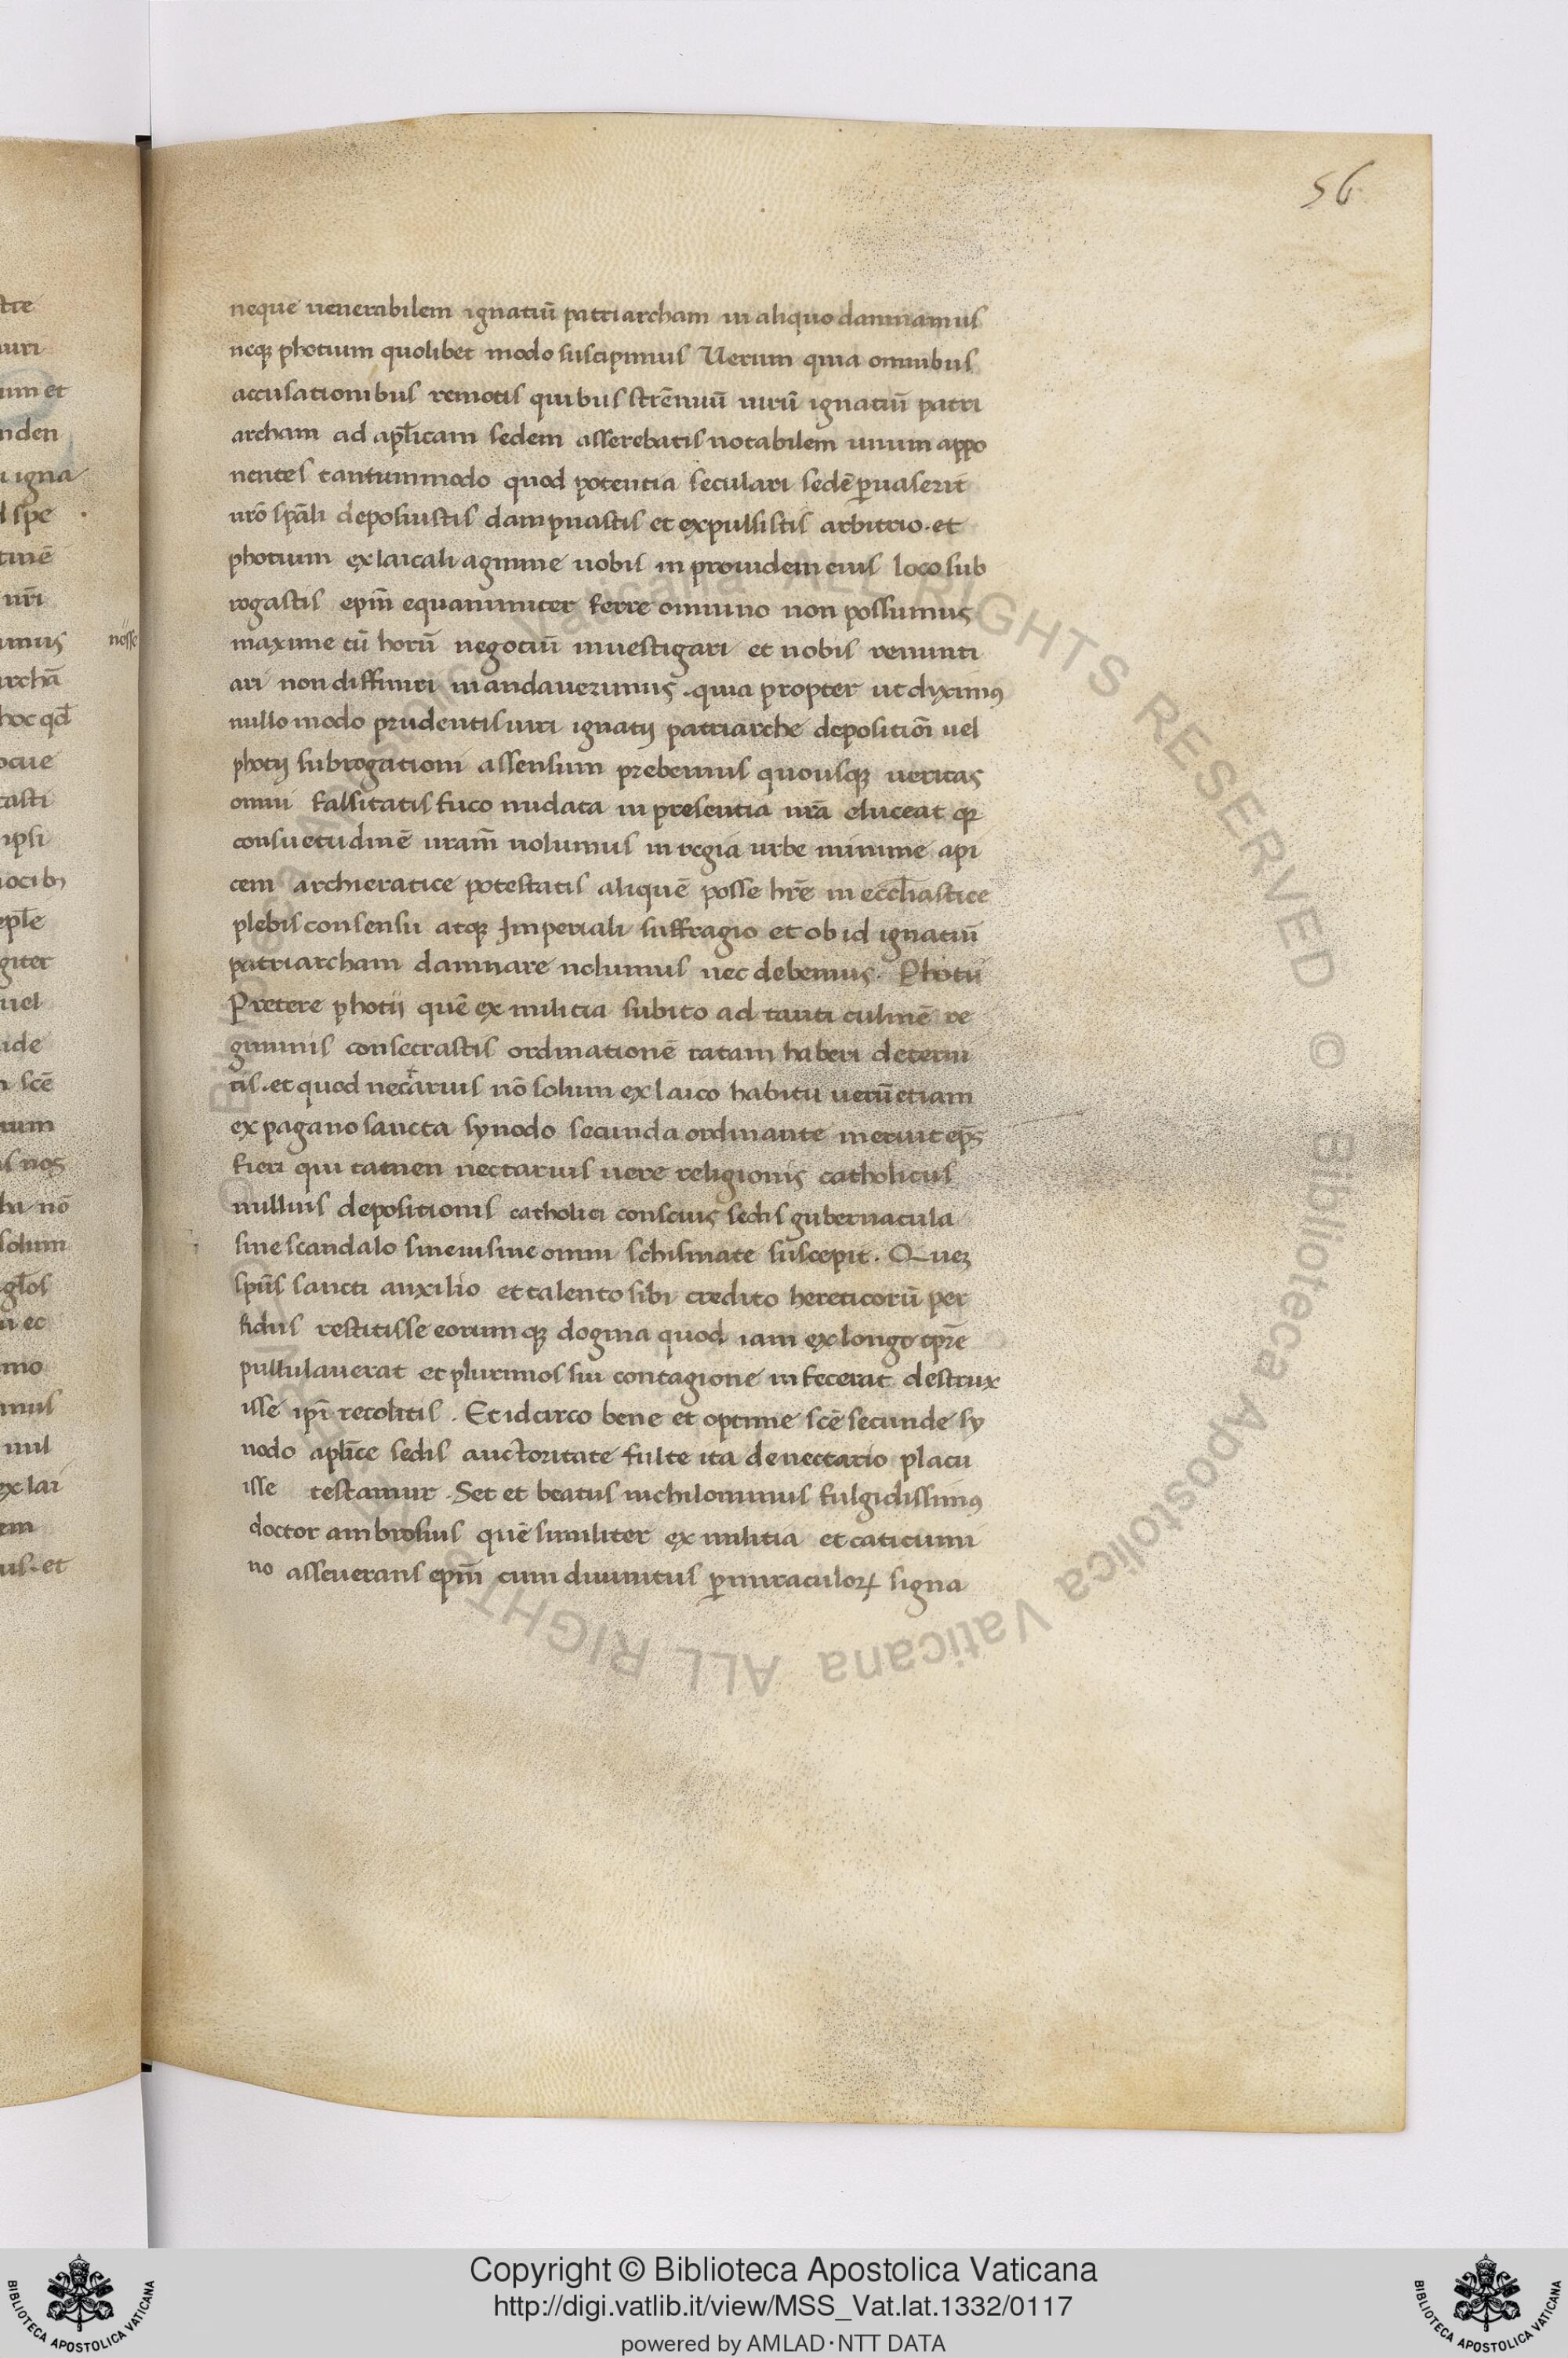 56
neque uenerabilem ignatiū patriarcham in aliquo damnamus
neqꝫ photium quolibet modo suscipimus Uerum quia omnibus
accusationibus remotis quibus strēnuū uirū ignatiū patri
archam ad apl̄icam sedem asserebatis notabilem unum appo
nentes tantummodo quod potentia seculari sedē ꝑuaserit
uro sp̄ali deposuistis dampnastis et expulsistis arbitrio. et
photium ex laicali agmine nobis inprouidem eius loco sub
rogastis ep̄m equanimiter ferre omnino non possumus
maxime cū horū negociū inuestigari et nobis renunti
ari non diffiniri mandauerimus. quia propter ut diximꝰ
nullo modo prudentis uiri ignatij patriarche depositiōi uel
photij subrogationi assensum prebemus quousqꝫ ueritas
omni falsitatis fuco nudata in presentia nr̄a eluceat qꝫ
consuetudinē uram̄ nolumus in regia urbe minime api
cem archieratice potestatis aliquē posse hr̄e in eccl̄iastice
plebis consensu atqꝫ Imperiali suffragio et ob id ignatiū
patriarcham damnare nolumus nec debemus. Photii
Pretere photij quē ex militia subito ad tanti culmē re
giminis consecrastis ordinationē ratam haberi decerni
tis. et quod necarius nō solum ex laico habitu uerū etiam
t
ex pagano sancta synodo secunda ordinante meruit ep̄s
fieri qui tamen nectarius uere religionis catholicus
nullius depositionis catholici conscius sedis gubernacula
sine scandalo sineui sine omni schismate suscepit. Queꝫ
spūs sancti auxilio et talento sibi credito hereticorū per
fidiis restitisse eorumqꝫ dogma quod iam ex longo tp̄re
pullulauerat et plurimos sui contagione infecerat destrux
isse ip̄i recolitis. Et idcirco bene et optime scē secunde sy
nodo apl̄ice sedis auctoritate fulte ita de nectario placu
isse testamur. Set et beatus nichilominus fulgidissimꝰ
doctor ambrosius quē similiter ex militia et caticumi
no asseuerans ep̄m cum diuinitus ꝑ miraculoꝝ signa
nōsse
Copyright © Biblioteca Apostolica Vaticana
http://digi.vatlib.it/view/MSS_Vat.lat.1332/0117
powered by AMLAD·NTT DATA
BIBLIOTECA APOSTOLICA VATICANA
BIBLIOTECA APOSTOLICA VATICANA